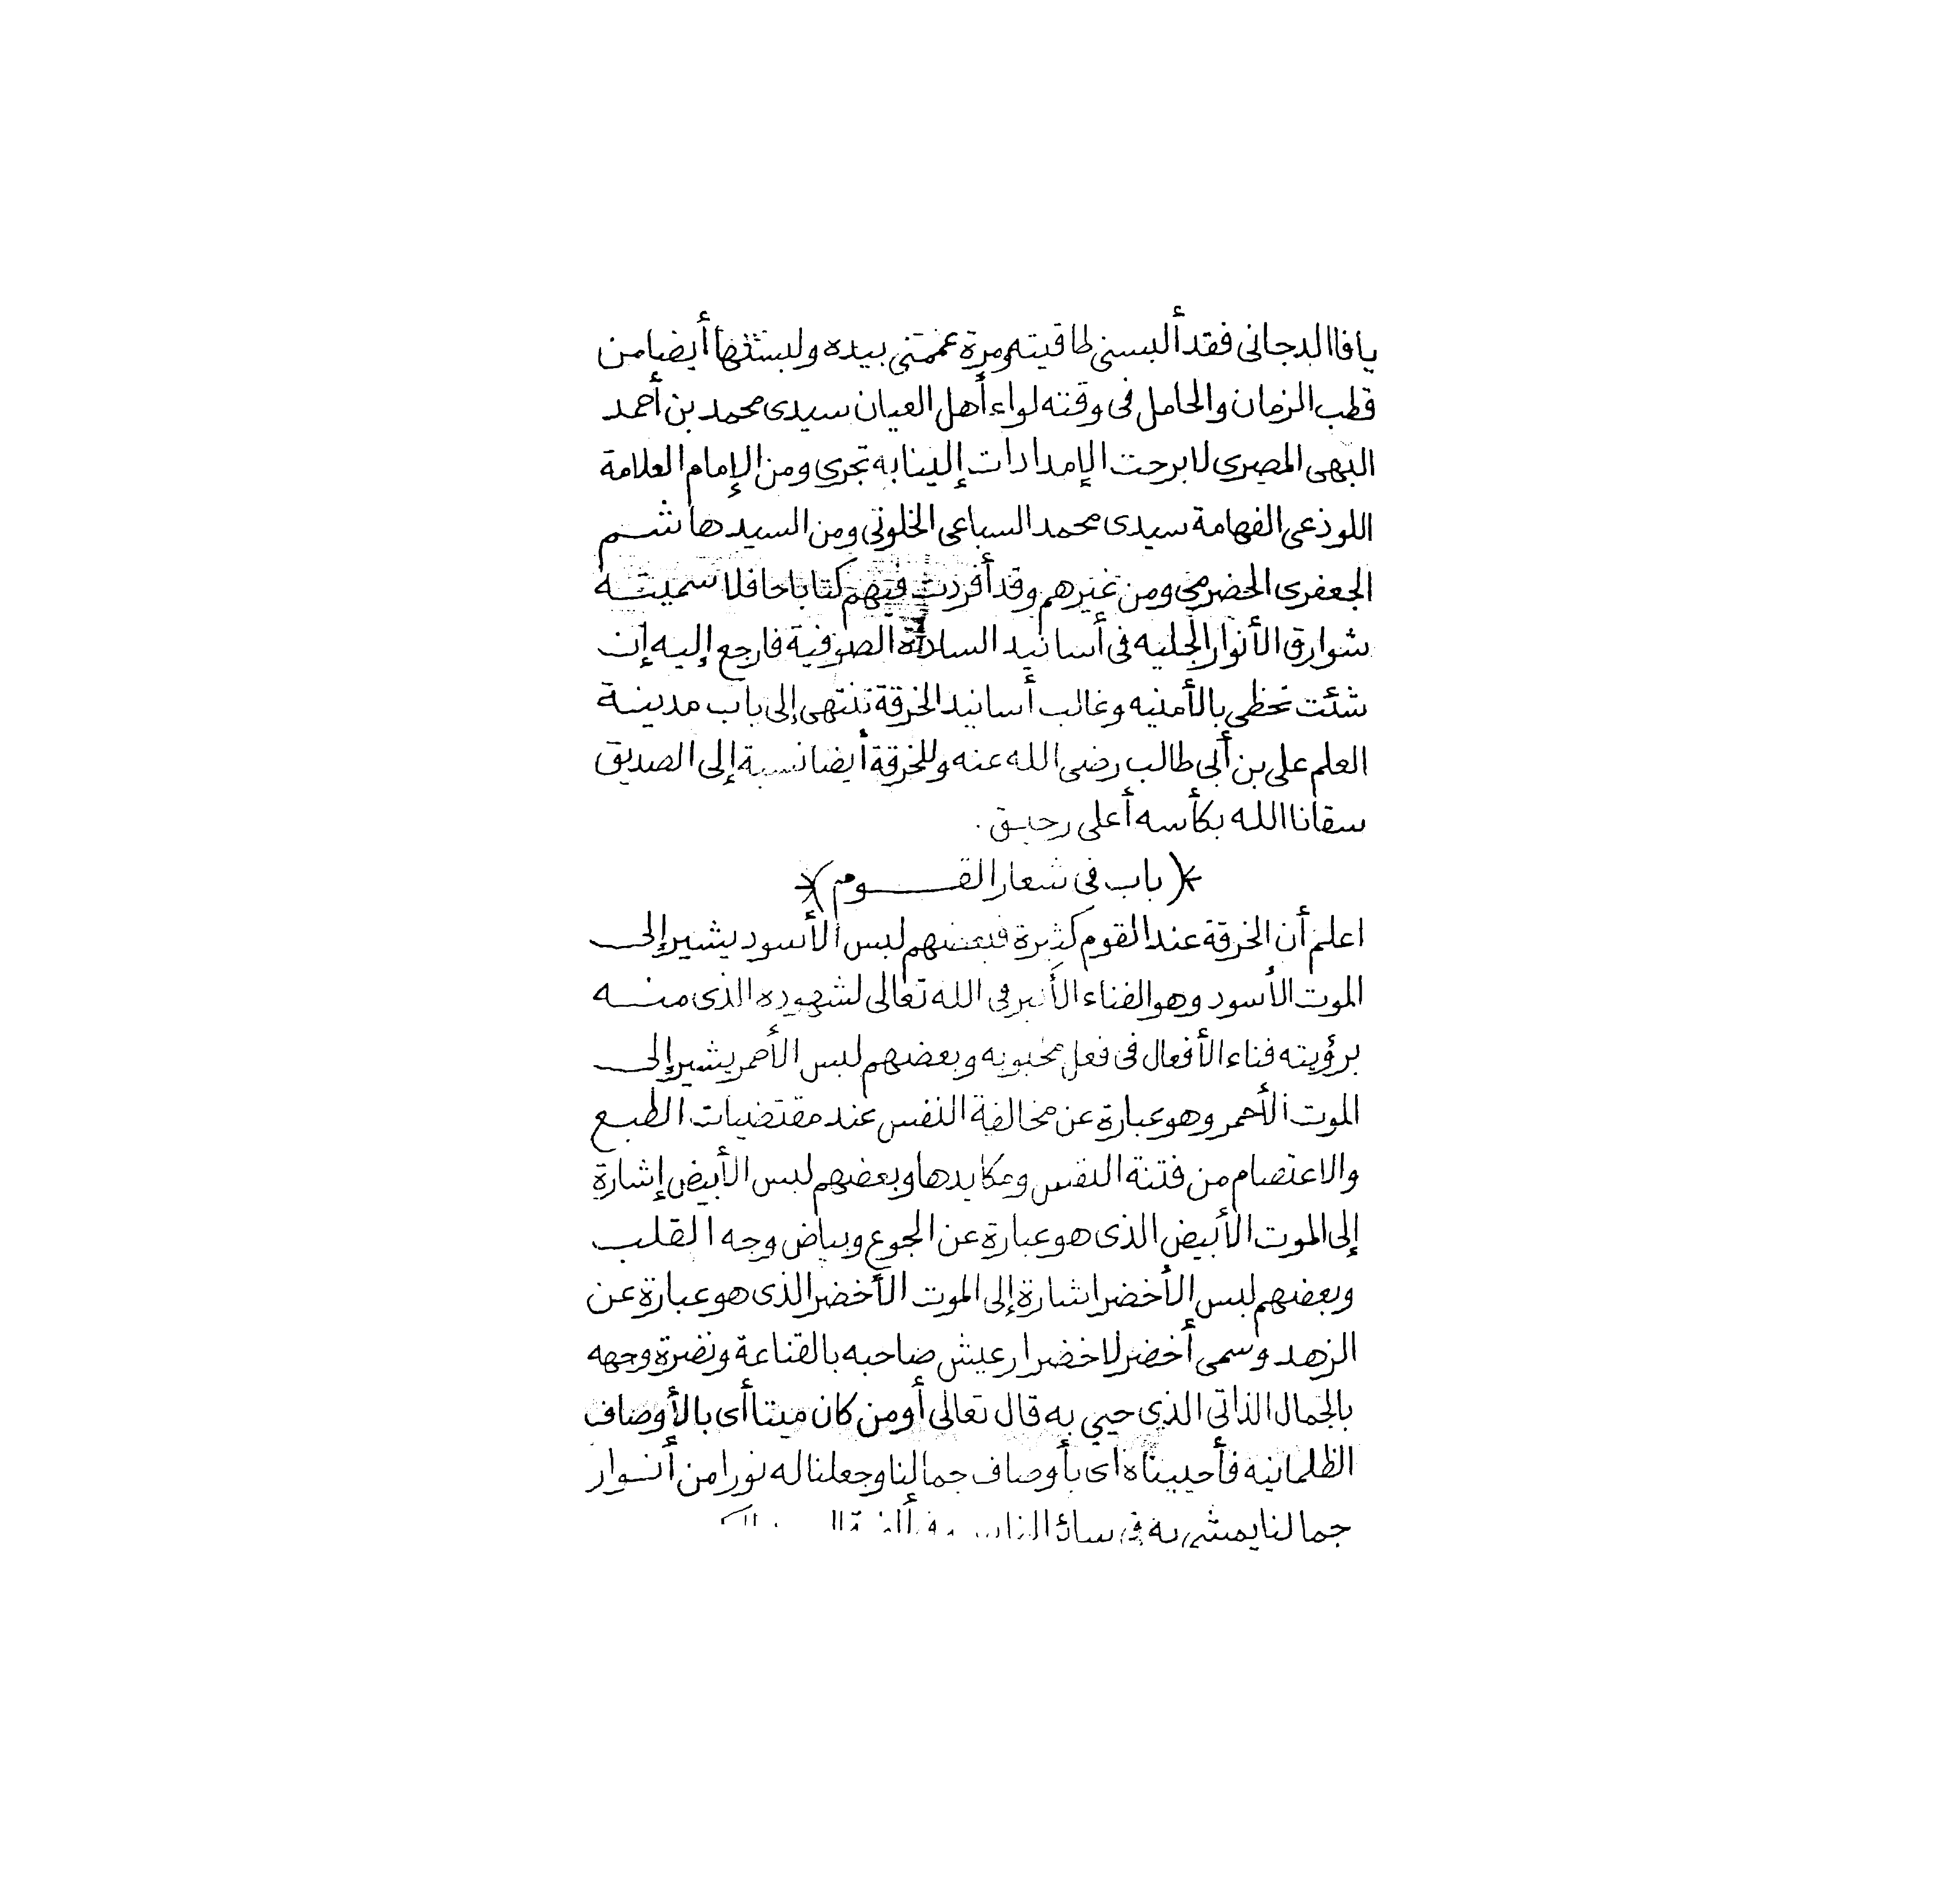 يافا الدجانى فقد ألبسنى طاقيته ومرة عممتنى بيده ولبستها أيضا من
قطب الزمان والحامل فى وقته لواء أهل العيان سيدى محمد بن أحمد
البهى المصيرى لابرحت الإمدادات إلينا به تجرى ومن الإمام العلامة
اللوذعى الفهامة سيدى محمد السباعى الخلوتى ومن السيد هاشم
الجعفرى الحضرمى ومن غيرهم وقد أفردت فيهم كتابا حافلا سميته
شوارق الأنوار الجليه فى أسانيد السادة الصوفية فارجع إليه إن
شئت تحظى بالأمنيه وغالب أسانيد الخرقة تنتهى إلى باب مدينة
العلم على بن أبى طالب رضى الله عنه وللخرقة أيضا نسبة إلى الصديق
سقانا الله بكأسه أعلى رحيق .
*( باب فى شعار القوم )*
اعلم أن الخرقة عند القوم كثيرة فبعضهم لبس الأسود يشير إلى
الموت الأسود وهو الفناء الأكبر فى الله تعالى لشهوده الذى منه
برؤيته فناء الأفعال فى فعل محبوبه وبعضهم لبس الأحمر يشير إلى
الموت الأحمر وهو عبارة عن مخالفة النفس عند مقتضيات الطبع
والاعتصام من فتنة النفس ومكايدها وبعضهم لبس الأبيض إشارة
إلى الموت الأبيض الذى هو عبارة عن الجوع وبياض وجه القلب
وبعضهم لبس الأخضر اشارة إلى الموت الأخضر الذى هو عبارة عن
الزهد وسمى أخضر لاخضرار عيش صاحبه بالقناعة ونضرة وجهه
بالجمال الذاتى الذي حيي به قال تعالى أومن كان ميتا أى بالأوصاف
الظلمانيه فأحييناه أى بأوصاف جمالنا وجعلنا له نورا من أنوار
جمالنا يمشى به فى سائر الناس